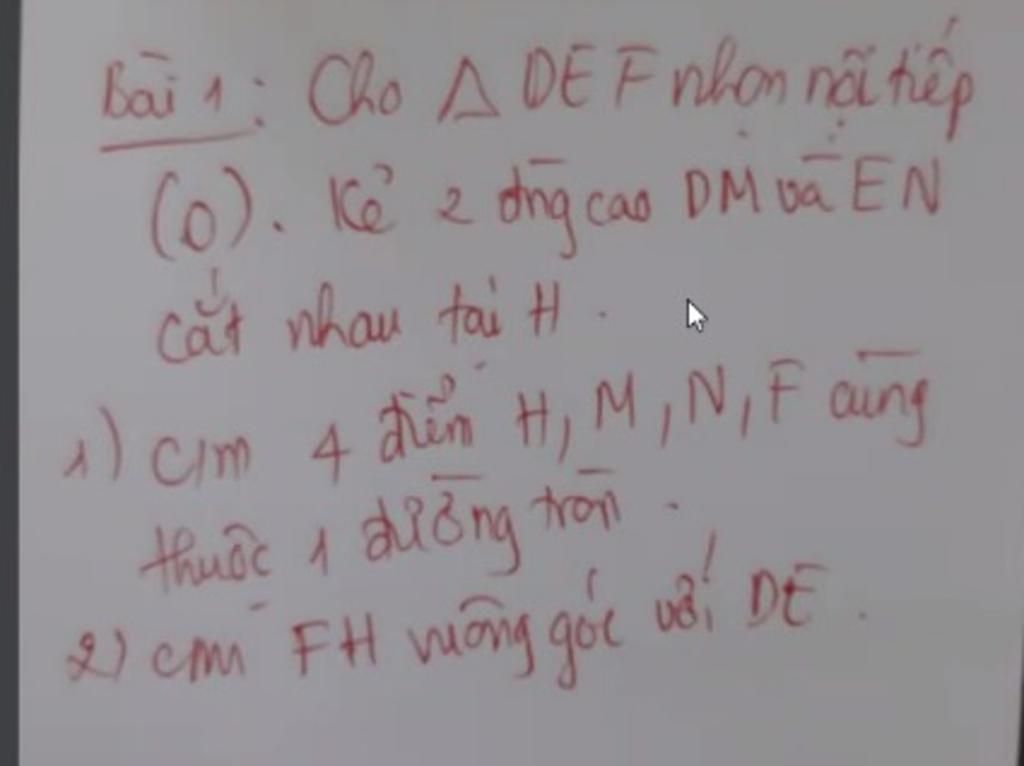 Bài 1: Cho Δ DEF nhọn nội tiếp
(O). Kẻ 2 đng cao DM và EN
cắt nhau tại H.
1) c/m 4 điểm H, M, N, F cùng
thuộc 1 đường tròn.
2) cm FH vuông góc với DE.